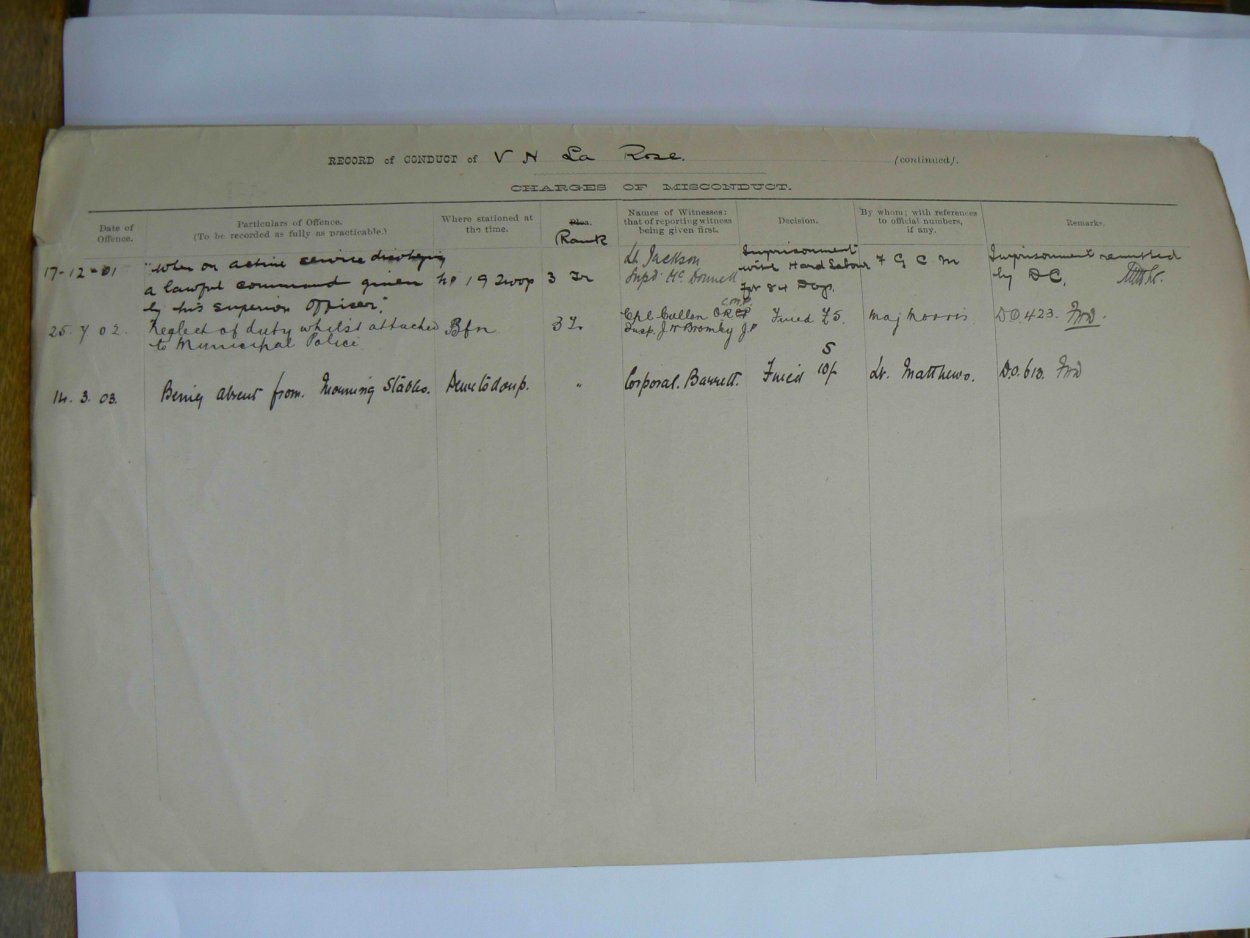 RECORD of CONDUCT of V N La Rose. (continued).
CHARGES OF MISCONDUCT.
Date of Offence.
Particulars of Offence. (To be recorded as fully as practicable.)
Where stationed at the time.
Plea. Rank
Names of Witnesses: that of reporting witness being given first.
Decision.
By whom; with references to official numbers, if any.
Remarks.
17-12-01
"When on active service disobeying
a lawful command given
by his superior officer".
No 19 Troop
3 Tr
Lt. Jackson
Supd Mc Donnell
Imprisonment
with Hard Labour
for 84 Days.
F G C M
Imprisonment remitted
by DC.
25. 7 02.
Neglect of duty whilst attached
to Municipal Police
Bfn
3 Tr
Cpl Cullen ORC
Insp. J W Bromley
Fined £5.
Maj Morris.
D.O. 423.
14. 3. 03.
Being absent from Morning Stables.
"
Corporal. Barrett.
Fined 10/-
Lt. Matthews.
D.O. 613.